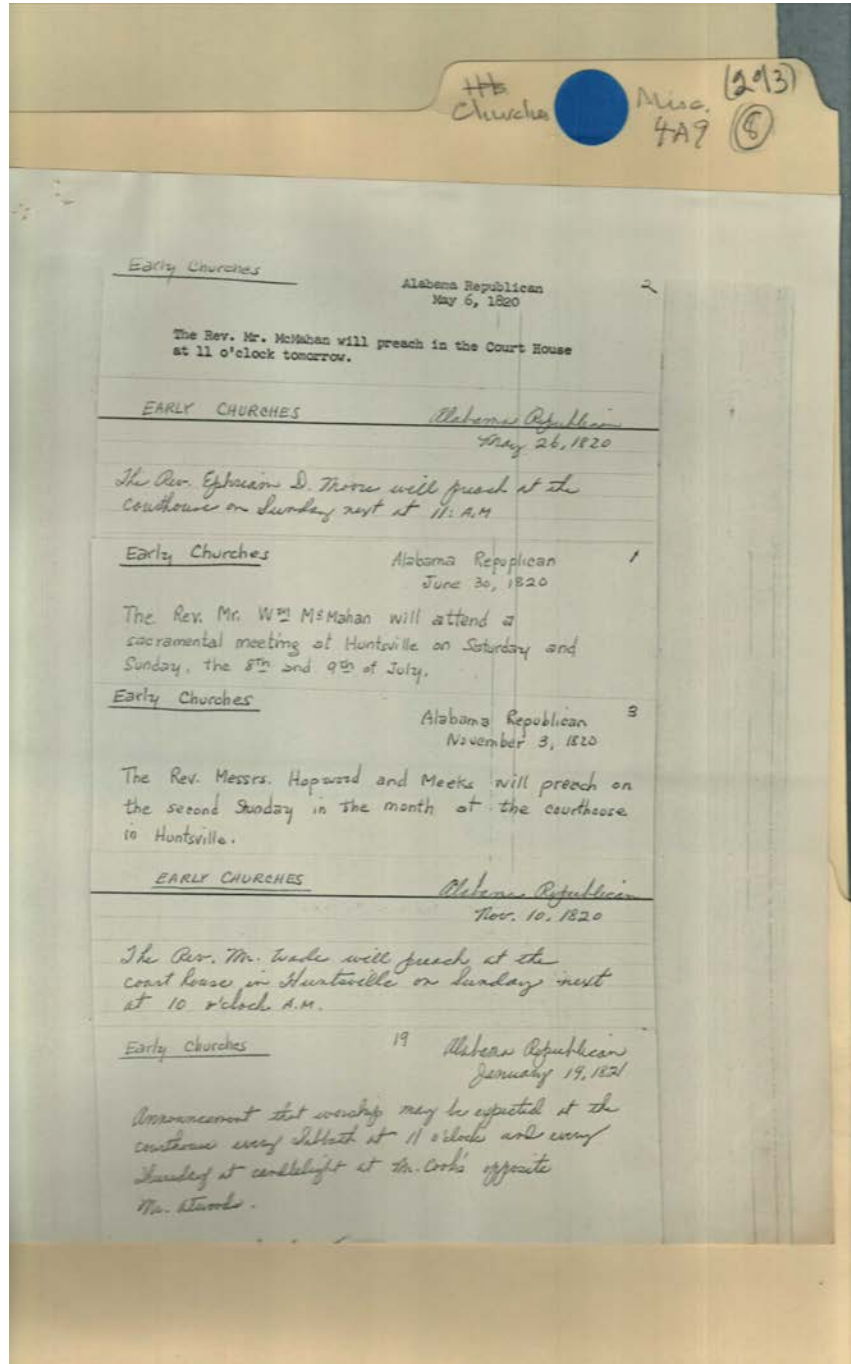 Churches
Misc.
(293)
4A9
8
Early Churches
Alabama Republican
May 6, 1820
2
The Rev. Mr. McMahan will preach in the Court House
at 11 o'clock tomorrow.
EARLY CHURCHES
Alabama Republican
May 26, 1820
The Rev. Ephriam D. Moore will preach at the
courthouse on Sunday next at 11: A.M
Early Churches
Alabama Repuplican
June 30, 1820
1
The Rev. Mr. Wm McMahan will attend a
sacramental meeting at Huntsville on Saturday and
Sunday, the 8th and 9th of July.
Early Churches
Alabama Republican
November 3, 1820
3
The Rev. Messrs. Hopwood and Meeks will preach on
the second Sunday in the month at the courthouse
in Huntsville.
EARLY CHURCHES
Alabama Republican
Nov. 10, 1820
The Rev. Mr. Wade will preach at the
court house in Huntsville on Sunday next
at 10 o'clock A.M.
Early Churches
19
Alabama Republican
January 19, 1821
Announcement that worship may be expected at the
courthouse every Sabbath at 11 o'clock and every
Thursday at candlelight at Mr. Cook's opposite
Mr. Atwoods.